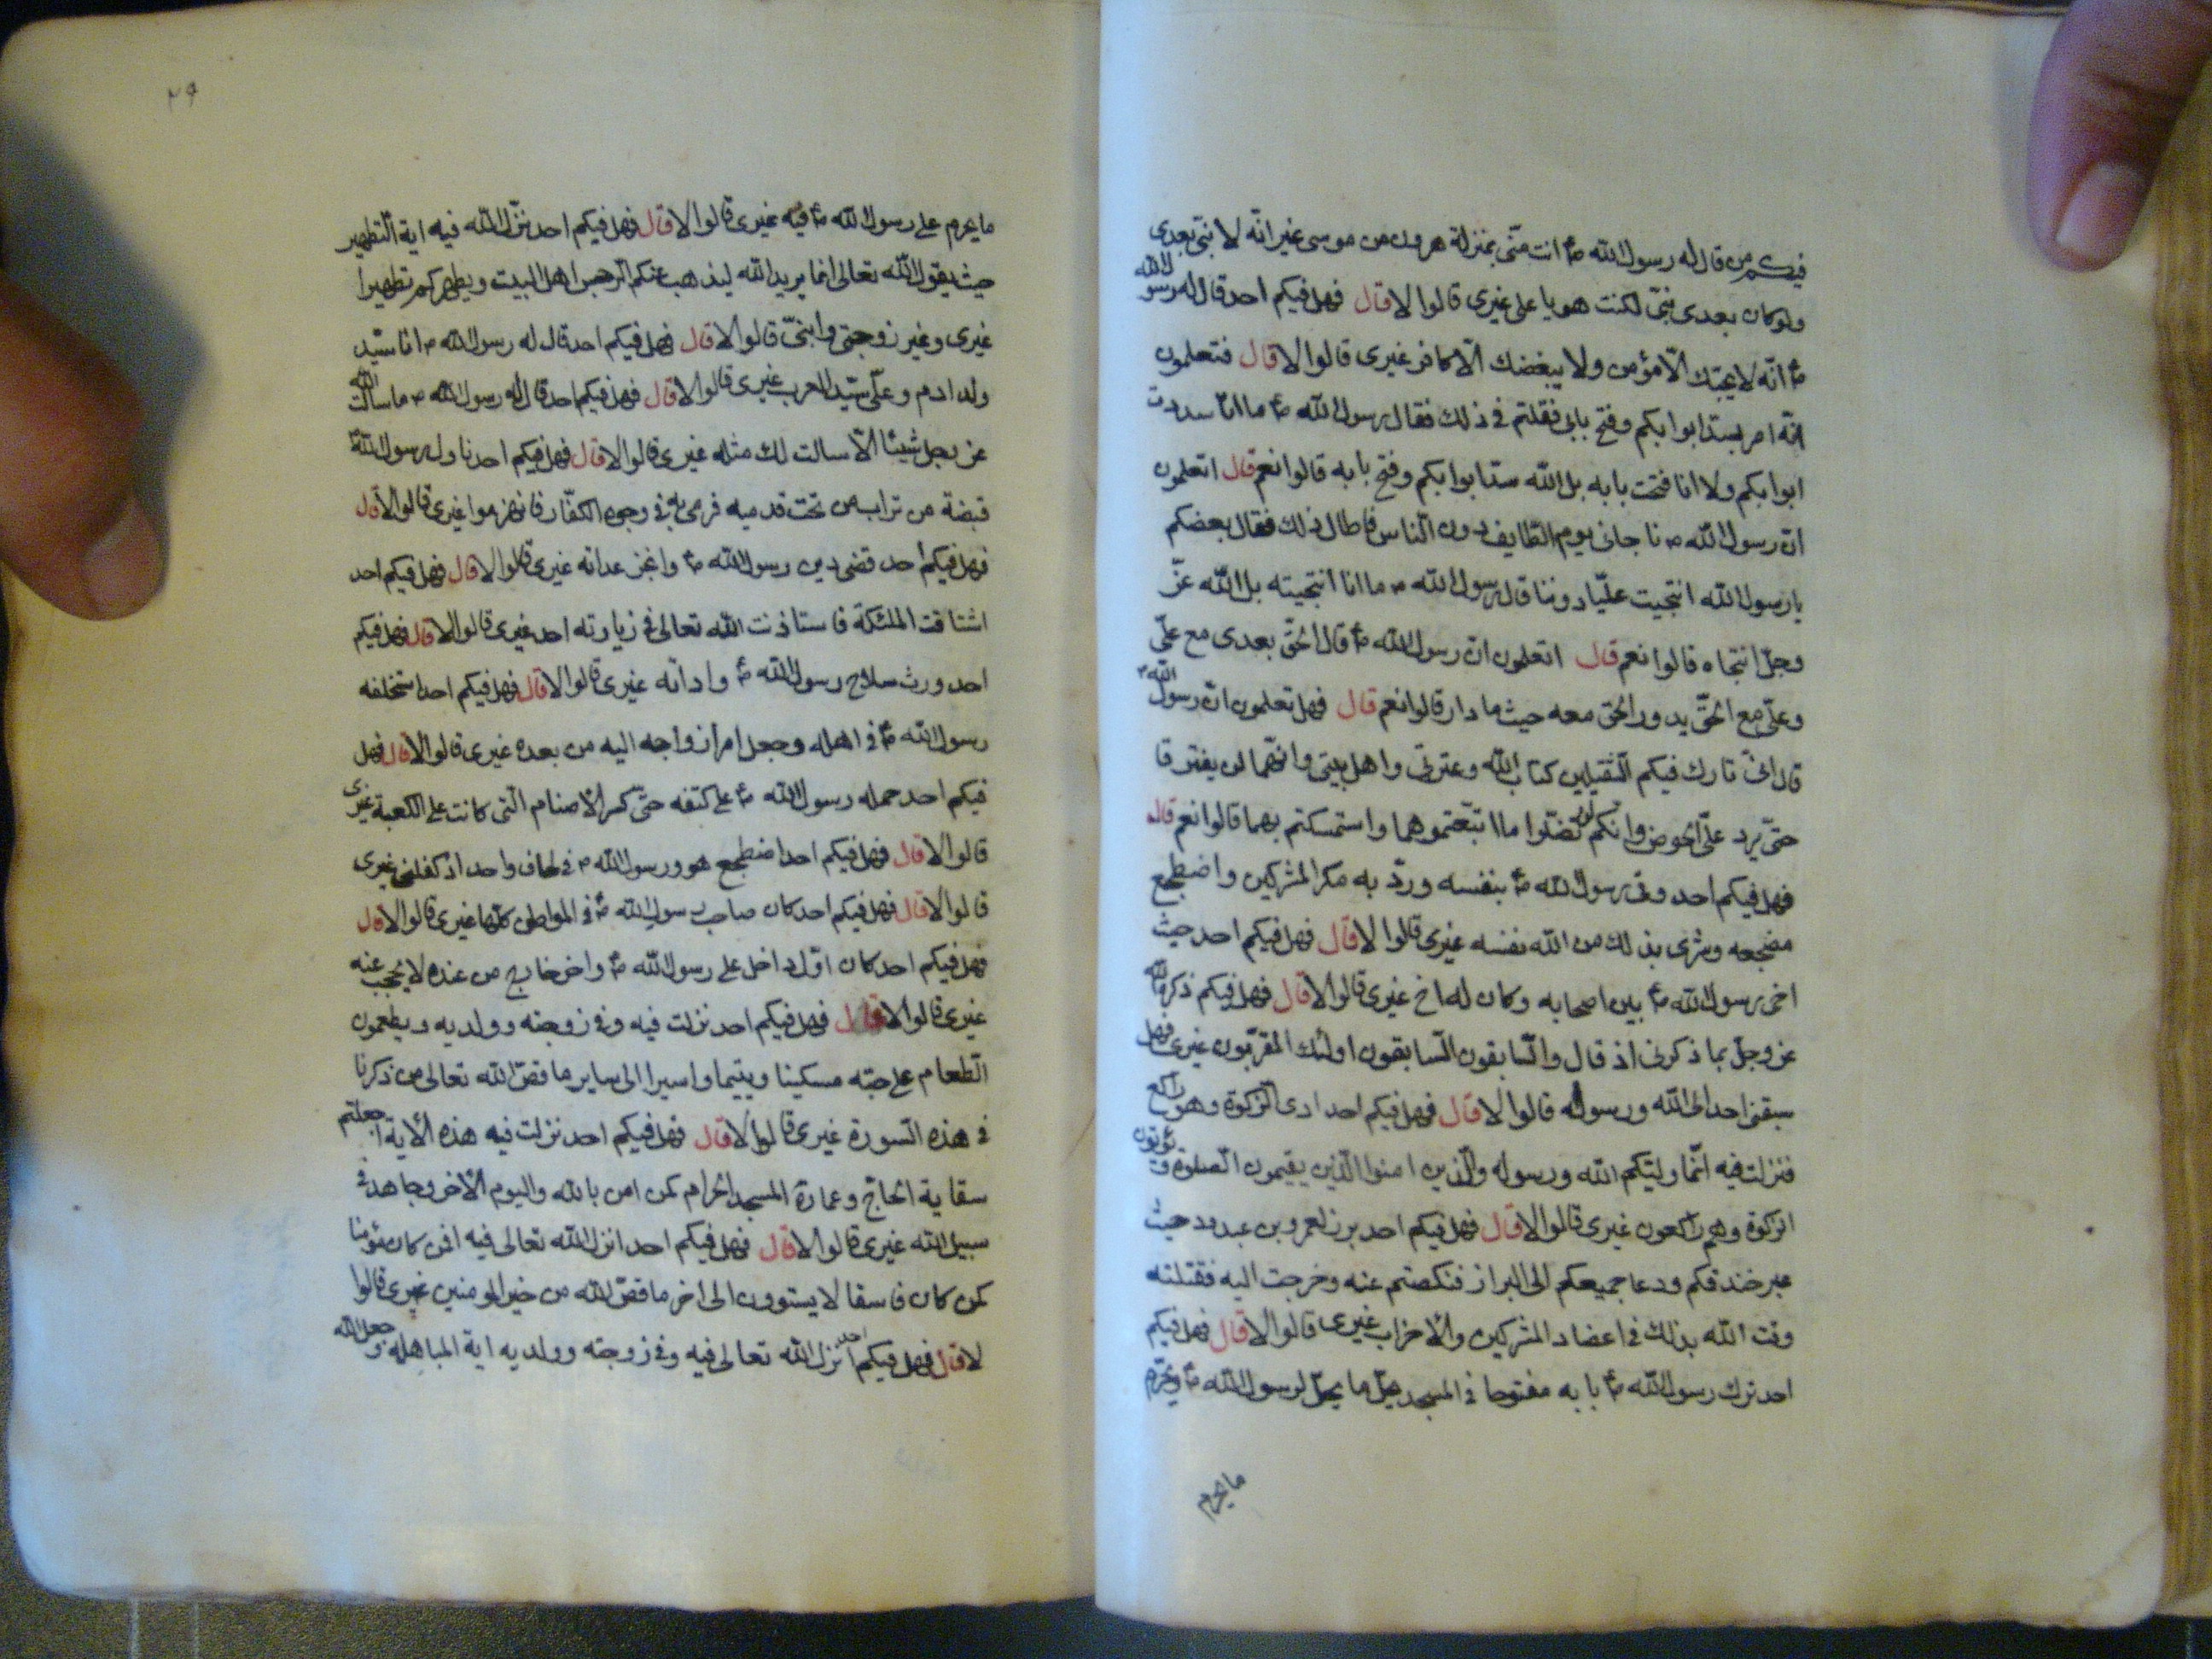 فيكم من قال له رسول الله ص انت منّي بمنزلة هرون من موسى غير انّه لا نبيّ بعدي
ولو كان بعدى نبيّ لكنت هو يا على غيرى قالوا لا قال فهل فيكم احد قال له رسول الله
ص انّه لا يحبّك الّا مؤمن ولا يبغضك الّا كافر غيرى قالوا لا قال فتعلمون
انّه امر بسدّ ابوابكم وفتح بابى فقلتم فى ذلك فقال رسول الله ص ما انا سددت
ابوابكم ولا انا فتحت بابه بل الله سدّ ابوابكم وفتح بابه قالوا نعم قال اتعلمون
انّ رسول الله ص ناجانى يوم الطّايف دون النّاس فاطال ذلك فقال بعضكم
يا رسول الله انتجيت عليّا دوننا قال رسول الله ص ما انا انتجيته بل الله عزّ
وجلّ انتجاه قالوا نعم قال اتعلمون انّ رسول الله ص قال الحقّ بعدى مع علىّ
وعلىّ مع الحقّ يدور الحق معه حيث ما دار قالوا نعم قال فهل تعلمون انّ رسول الله ص
قال انّى تارك فيكم الثّقلين كتاب الله وعترتى واهل بيتى وانّهما لن يفترقا
حتّى يرد علىّ الحوض وانكم لن تضلّوا ما اتبعتموهما واستمسكتم بهما قالوا نعم قال
فهل فيكم احد وقى رسول الله ص بنفسه وردّ به مكر المشركين واضطجع
مضجعه وشرى بذلك من الله نفسه غيرى قالوا لا قال فهل فيكم احد حيث
اخى رسول الله ص بين اصحابه وكان له اخ غيرى قالوا لا قال فهل فيكم ذكره الله
عز وجلّ بما ذكرنى اذ قال والسّابقون السّابقون اولئك المقرّبون غيرى فهل
سبقنى احد الى الله ورسوله قالوا لا قال فهل فيكم احد ادى الزكوة وهو راكع
فنزلت فيه انّما وليّكم الله ورسوله والّذين امنوا الّذين يقيمون الصلوة ويؤتون
الزكوة وهم راكعون غيرى قالوا لا قال فهل فيكم احد برز لعمرو بن عبدود حيث
عبر خندقكم ودعا جميعكم الى البراز فنكصتم عنه وخرجت اليه فقتلته
وفت الله بذلك فى اعضاد المشركين والاحزاب غيرى قالوا لا قال فهل فيكم
احد ترك رسول الله ص بابه مفتوحا فى المسجد يحلّ ما يحلّ لرسول الله ص ويحرّم
ما يحرم
٢٩
ما يحرم على رسول الله ص فيه غيرى قالوا لا قال فهل فيكم احد نزّل الله فيه اية التّطهير
حيث يقول الله تعالى انما يريد الله ليذهب عنكم الرّجس اهل البيت ويطهركم تطهيرا
غيرى وغير زوجتى وابنىّ قالوا لا قال فهل فيكم احد قال له رسول الله ص انا سيّد
ولد ادم وعلىّ سيّد العرب غيرى قالوا لا قال فهل فيكم احد قال له رسول الله ص ما سالت الله
عز وجل شيئا الّا سالت لك مثله غيرى قالوا لا قال فهل فيكم احد ناول رسول الله ص
قبضة من تراب من تحت قدميه فرمى به فى وجوه الكفّار فانهزموا غيرى قالوا لا قال
فهل فيكم احد قضى دين رسول الله ص وانجز عداته غيرى قالوا لا قال فهل فيكم احد
اشتاقت الملئكة فاستاذنت الله تعالى فى زيارته احد غيرى قالوا لا قال فهل فيكم
احد ورث سلاح رسول الله ص واداته غيرى قالوا لا قال فهل فيكم احد استخلفه
رسول الله ص فى اهله وجعل امر ازواجه اليه من بعده غيرى قالوا لا قال فهل
فيكم احد حمله رسول الله ص على كتفه حتّى كسر الاصنام الّتى كانت على الكعبة غيرى
قالوا لا قال فهل فيكم احد اضطجع هو ورسول الله ص فى لحاف واحد اذ كفلنى غيرى
قالوا لا قال فهل فيكم احد كان صاحب رسول الله ص فى المواطن كلّها غيرى قالوا لا قال
فهل فيكم احد كان اوّل داخل على رسول الله ص واخر خارج من عنده لا يحجب عنه
غيرى قالوا لا قال فهل فيكم احد نزلت فيه وفى زوجته وولديه ويطعمون
الطّعام على حبّه مسكينا ويتيما واسيرا الى ساير ما قصّ الله تعالى من ذكرنا
فى هذه السّورة غيرى قالوا لا قال فهل فيكم احد نزلت فيه هذه الاية اجعلتم
سقاية الحاجّ وعمارة المسجد الحرام كمن امن بالله واليوم الاخر وجاهد فى
سبيل الله غيرى قالوا لا قال فهل فيكم احد انزل الله تعالى فيه افمن كان مؤمنا
كمن كان فاسقا لا يستوون الى اخر ما قصّ الله من خبر المومنين غيرى قالوا
لا قال فهل فيكم احد انزل الله تعالى فيه وفى زوجته وولديه اية المباهله وجعل الله